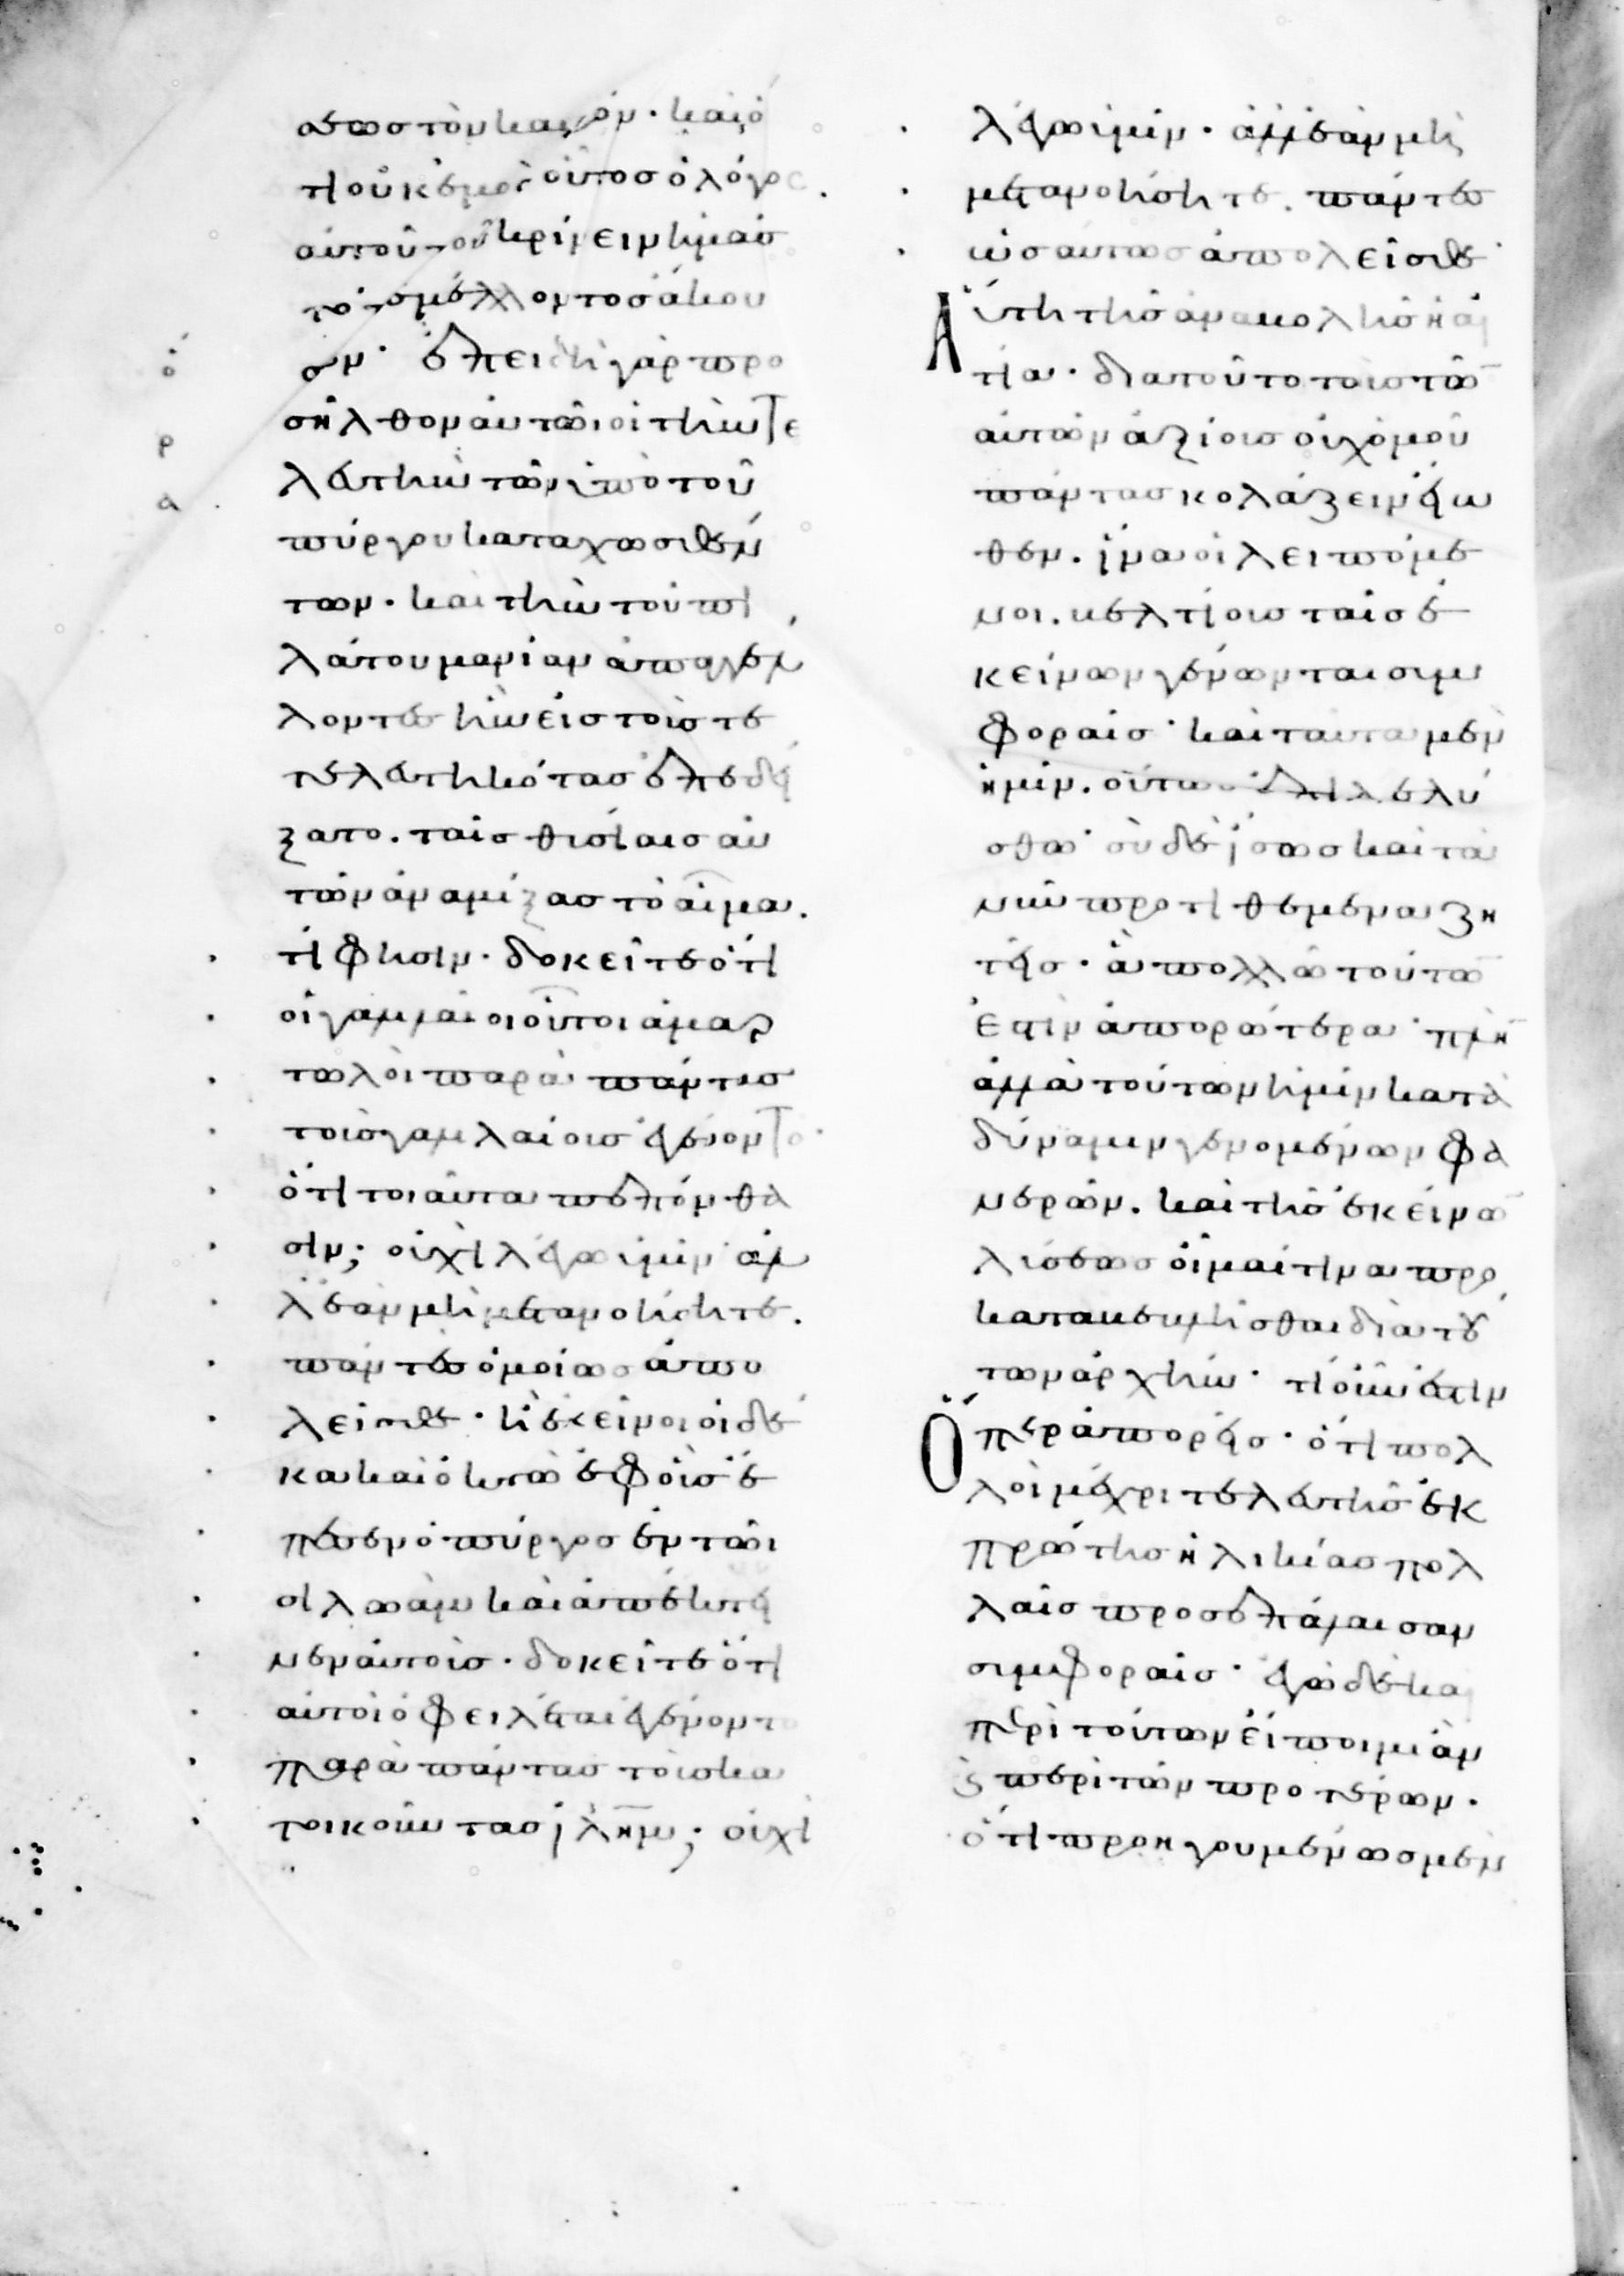 τὶ οὐκ ἐμὸς οὗτος ὁ λόγος.
αὐτοῦ τοῦ κρίνειν ἡμᾶς
τοῦ μέλλοντος ἀκού
ειν· ἐπειδὴ γὰρ προ
σῆλθον αὐτῶι οἱ τὴν τε
λευτὴν τῶν ὑπὸ τοῦ
πύργου καταχωσθέν
των· καὶ τὴν τοῦ πι
λάτου μανίαν ἀπαγγέλ
λοντες ἣν εἰς τοὺς τε
τελευτηκότας ἐπεδεί
ξατο. ταῖς θυσίαις αὐ
τῶν ἀναμίξας τὸ αἷμα.
τί φησιν· δοκεῖτε ὅτι
οἱ γαλιλαῖοι οὗτοι ἁμαρ
τωλοὶ παρὰ πάντας
τοὺς γαλιλαίους ἐγένοντο·
ὅτι τοιαῦτα πεπόνθα
σιν; οὐχὶ λέγω ὑμῖν ἀλ
λ' ἐὰν μὴ μετανοήσητε.
πάντες ὁμοίως ἀπο
λεῖσθε· ἢ ἐκεῖνοι οἱ δέ
κα καὶ ὀκτὼ ἐφ' οὓς ἔ
πεσεν ὁ πύργος ἐν τῶι
σιλωὰμ καὶ ἀπέκτει
νεν αὐτούς· δοκεῖτε ὅτι
αὐτοὶ ὀφειλέται ἐγένοντο
παρὰ πάντας τοὺς κα
τοικοῦντας ἰλημ; οὐχὶ
λέγω ὑμῖν· ἀλλ' ἐὰν μὴ
μετανοήσητε. πάντες
ὡσαύτως ἀπολεῖσθε·
Αὕτη τῆς ἀνακολῆς ἡ αἰ
τία· διὰ τοῦτο τοὺς τῶν
αὐτῶν ἀξίους οὐχ ὁμοῦ
πάντας κολάζειν εἴω
θεν. ἵνα οἱ λειπόμε
νοι. βελτίους ταῖς ἐ
κείνων γένωνται συμ
φοραῖς· καὶ ταῦτα μὲν
ἡμῖν. οὕτως ἐπιλελύ
σθω· σὺ δὲ ἴσως καὶ τὰ
νῦν προτιθέμενα ζη
τεῖς· ἃ πολλῶ τούτων
ἐστὶν ἀπορώτερα· πλὴν
ἀλλὰ τούτων ἡμῖν κατὰ
δύναμιν γενομένων φα
νερῶν. καὶ τῆς ἐκείνων
λύσεως οἶμαί τινα προ
καταβεβλῆσθαι διὰ τού
των ἀρχήν· τί οὖν ἐστιν
Ὅπερ ἀπορεῖς· ὅτι πολ
λοὶ μέχρι τελευτῆς ἐκ
πρώτης ἡλικίας πολ
λαῖς προσεπάλαισαν
συμφοραῖς· ἐγὼ δὲ καὶ
περὶ τούτων εἴποιμι ἂν
ἃ περὶ τῶν προτέρων.
ὅτι προηγουμένως μὲν